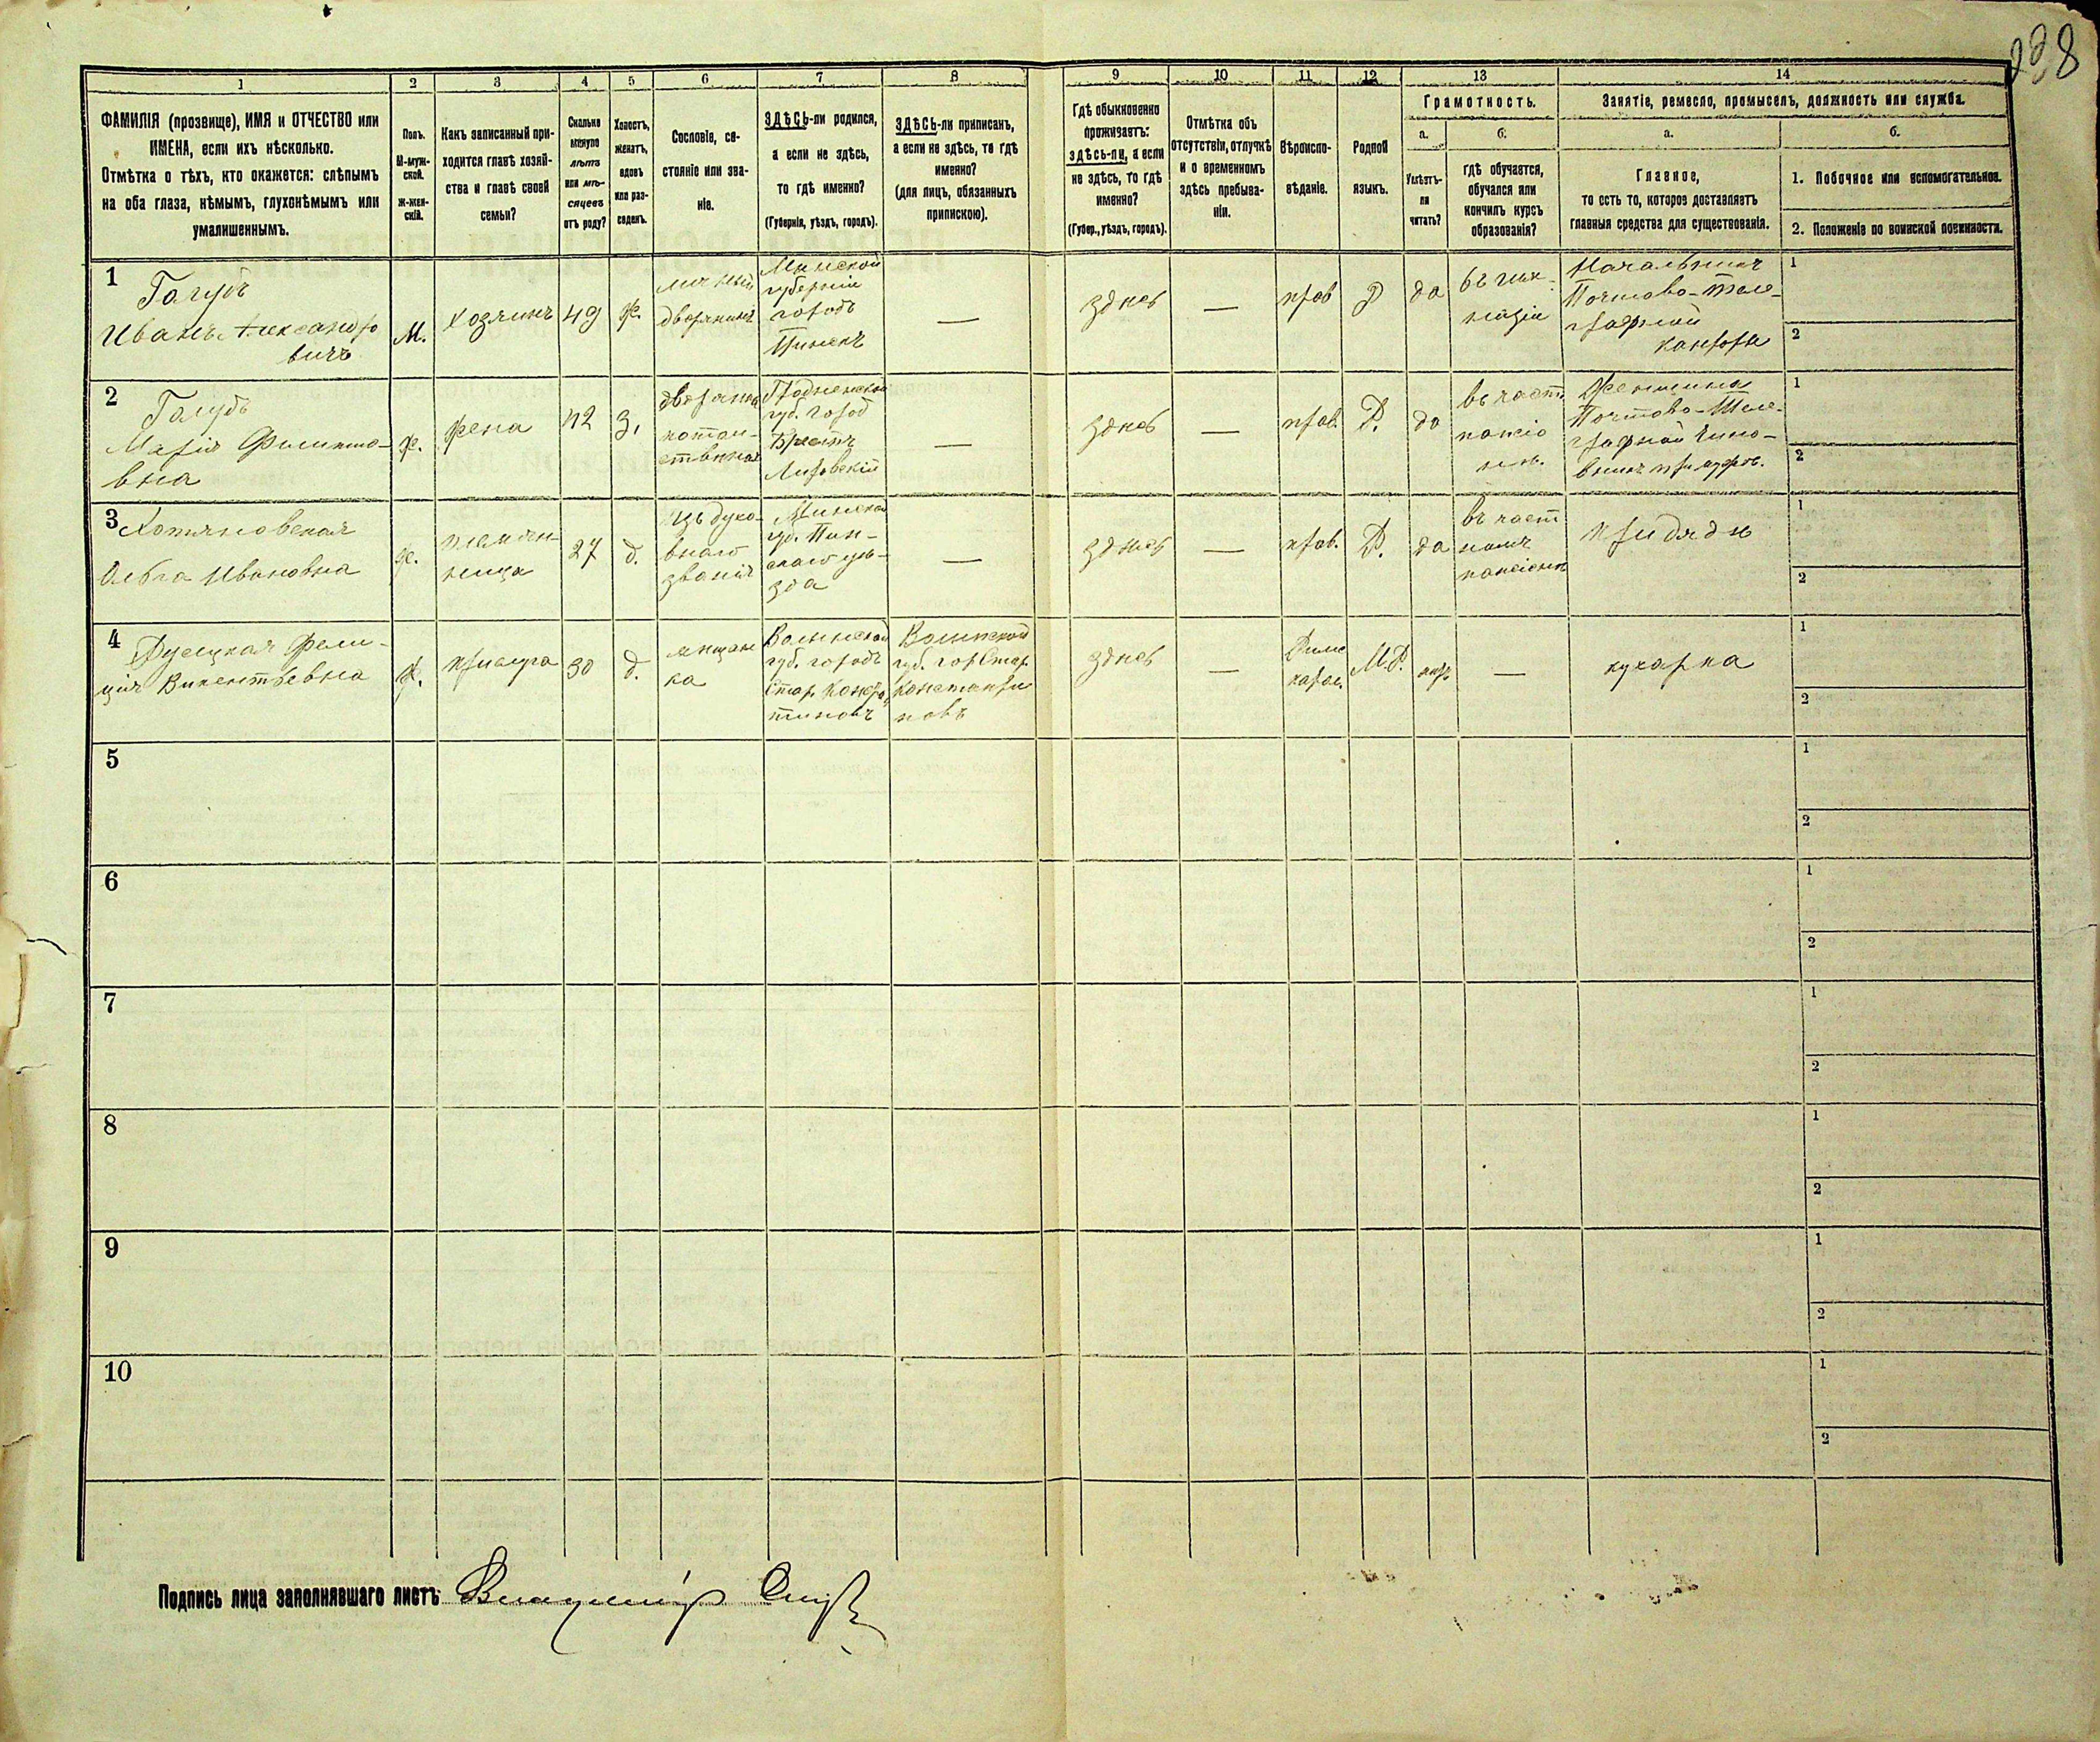 238
1
2
3
4
5
6
7
8
9
10
11
12
13
14
ФАМИЛІЯ (прозвище), ИМЯ и ОТЧЕСТВО или
ИМЕНА, если ихъ нѣсколько.
Отмѣтка о тѣхъ, кто окажется: слѣпымъ
на оба глаза, нѣмымъ, глухонѣмымъ или
умалишеннымъ.
Полъ.
М-муж-
ской.
Ж-жен-
скій.
Какъ записанный при-
ходится главѣ хозяй-
ства и главѣ своей
семьи?
Сколько
минуло
лѣтъ
или мѣ-
сяцевъ
отъ роду?
Холостъ,
женатъ,
вдовъ
или раз-
веденъ.
Сословіе, со-
стояніе или зва-
ніе.
ЗДѢСЬ-ли родился,
а если не здѣсь,
то гдѣ именно?
(Губернія, уѣздъ, городъ).
ЗДѢСЬ-ли приписанъ,
а если не здѣсь, то гдѣ
именно?
(для лицъ, обязанныхъ
припискою).
Гдѣ обыкновенно
проживаетъ:
здѣсь-ли, а если
не здѣсь, то гдѣ
именно?
(Губер., уѣздъ, городъ).
Отмѣтка объ
отсутствіи, отлучкѣ
и о временномъ
здѣсь пребыва-
ніи.
Вѣроиспо-
вѣданіе.
Родной
языкъ.
Грамотность.
а.
б.
Умѣетъ-
ли
читать?
гдѣ обучается,
обучался или
кончилъ курсъ
образованія?
Занятіе, ремесло, промыселъ, должность или служба.
а.
б.
Главное,
то есть то, которое доставляетъ
главныя средства для существованія.
1. Побочное или вспомогательное.
2. Положеніе по воинской повинности.
1
Голубъ
Иванъ Александро
вичъ
М.
хозяинъ
49
ж.
личный
дворянинъ
Минской
губерніи
городъ
Пинскъ
—
здѣсь
—
прав
Р
да
въ гим-
назіи
Начальникъ
Почтово-теле-
графной
конторы
1
2
2
Голубъ
Марія Филиппо-
вна
ж.
жена
42
з.
дворянка
потом-
ственная
Гродненской
губ. город
Брестъ
Литовскій
—
здѣсь
—
прав.
Р.
да
въ част.
пансіо
нѣ.
Женщина
Почтово-Теле-
графной чино-
вникъ при мужѣ.
1
2
3
Хотяновская
Ольга Ивановна
ж.
племян-
ница
27
д.
изъ духо-
внаго
званія
Минской
губ. Пин-
скаго уѣ-
зда
—
здѣсь
—
прав.
Р.
да
въ част
номъ
пансіонѣ
при дядѣ
1
2
4
Фели-
ція Викентьевна
ж.
прислуга
30
д.
мѣщан
ка
Волынской
губ. городъ
Стар. Конста
тиновъ
Волынской
губ. гор Стар.
Константи
новъ
здѣсь
—
Римс
катол.
М.Р.
нѣтъ
—
кухарка
1
2
5
1
2
6
1
2
7
1
2
8
1
2
9
1
2
10
1
2
Подпись лица заполнявшаго листъ